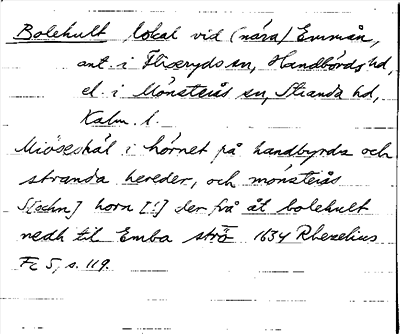 Bolehult, lokal vid (nära) Emmån,
ant. i Fliseryds sn, Handbörds hd,
el. i Mönsterås sn, Stranda hd,
Kalm. l.
Miösehål i hörnet på handbyrda och
stranda hereder, och mönsterås
S[ochn] horn [:] der frå åt bolehult
nedh til Emba strö 1634 Rhezelius
Fc 5, s. 119.